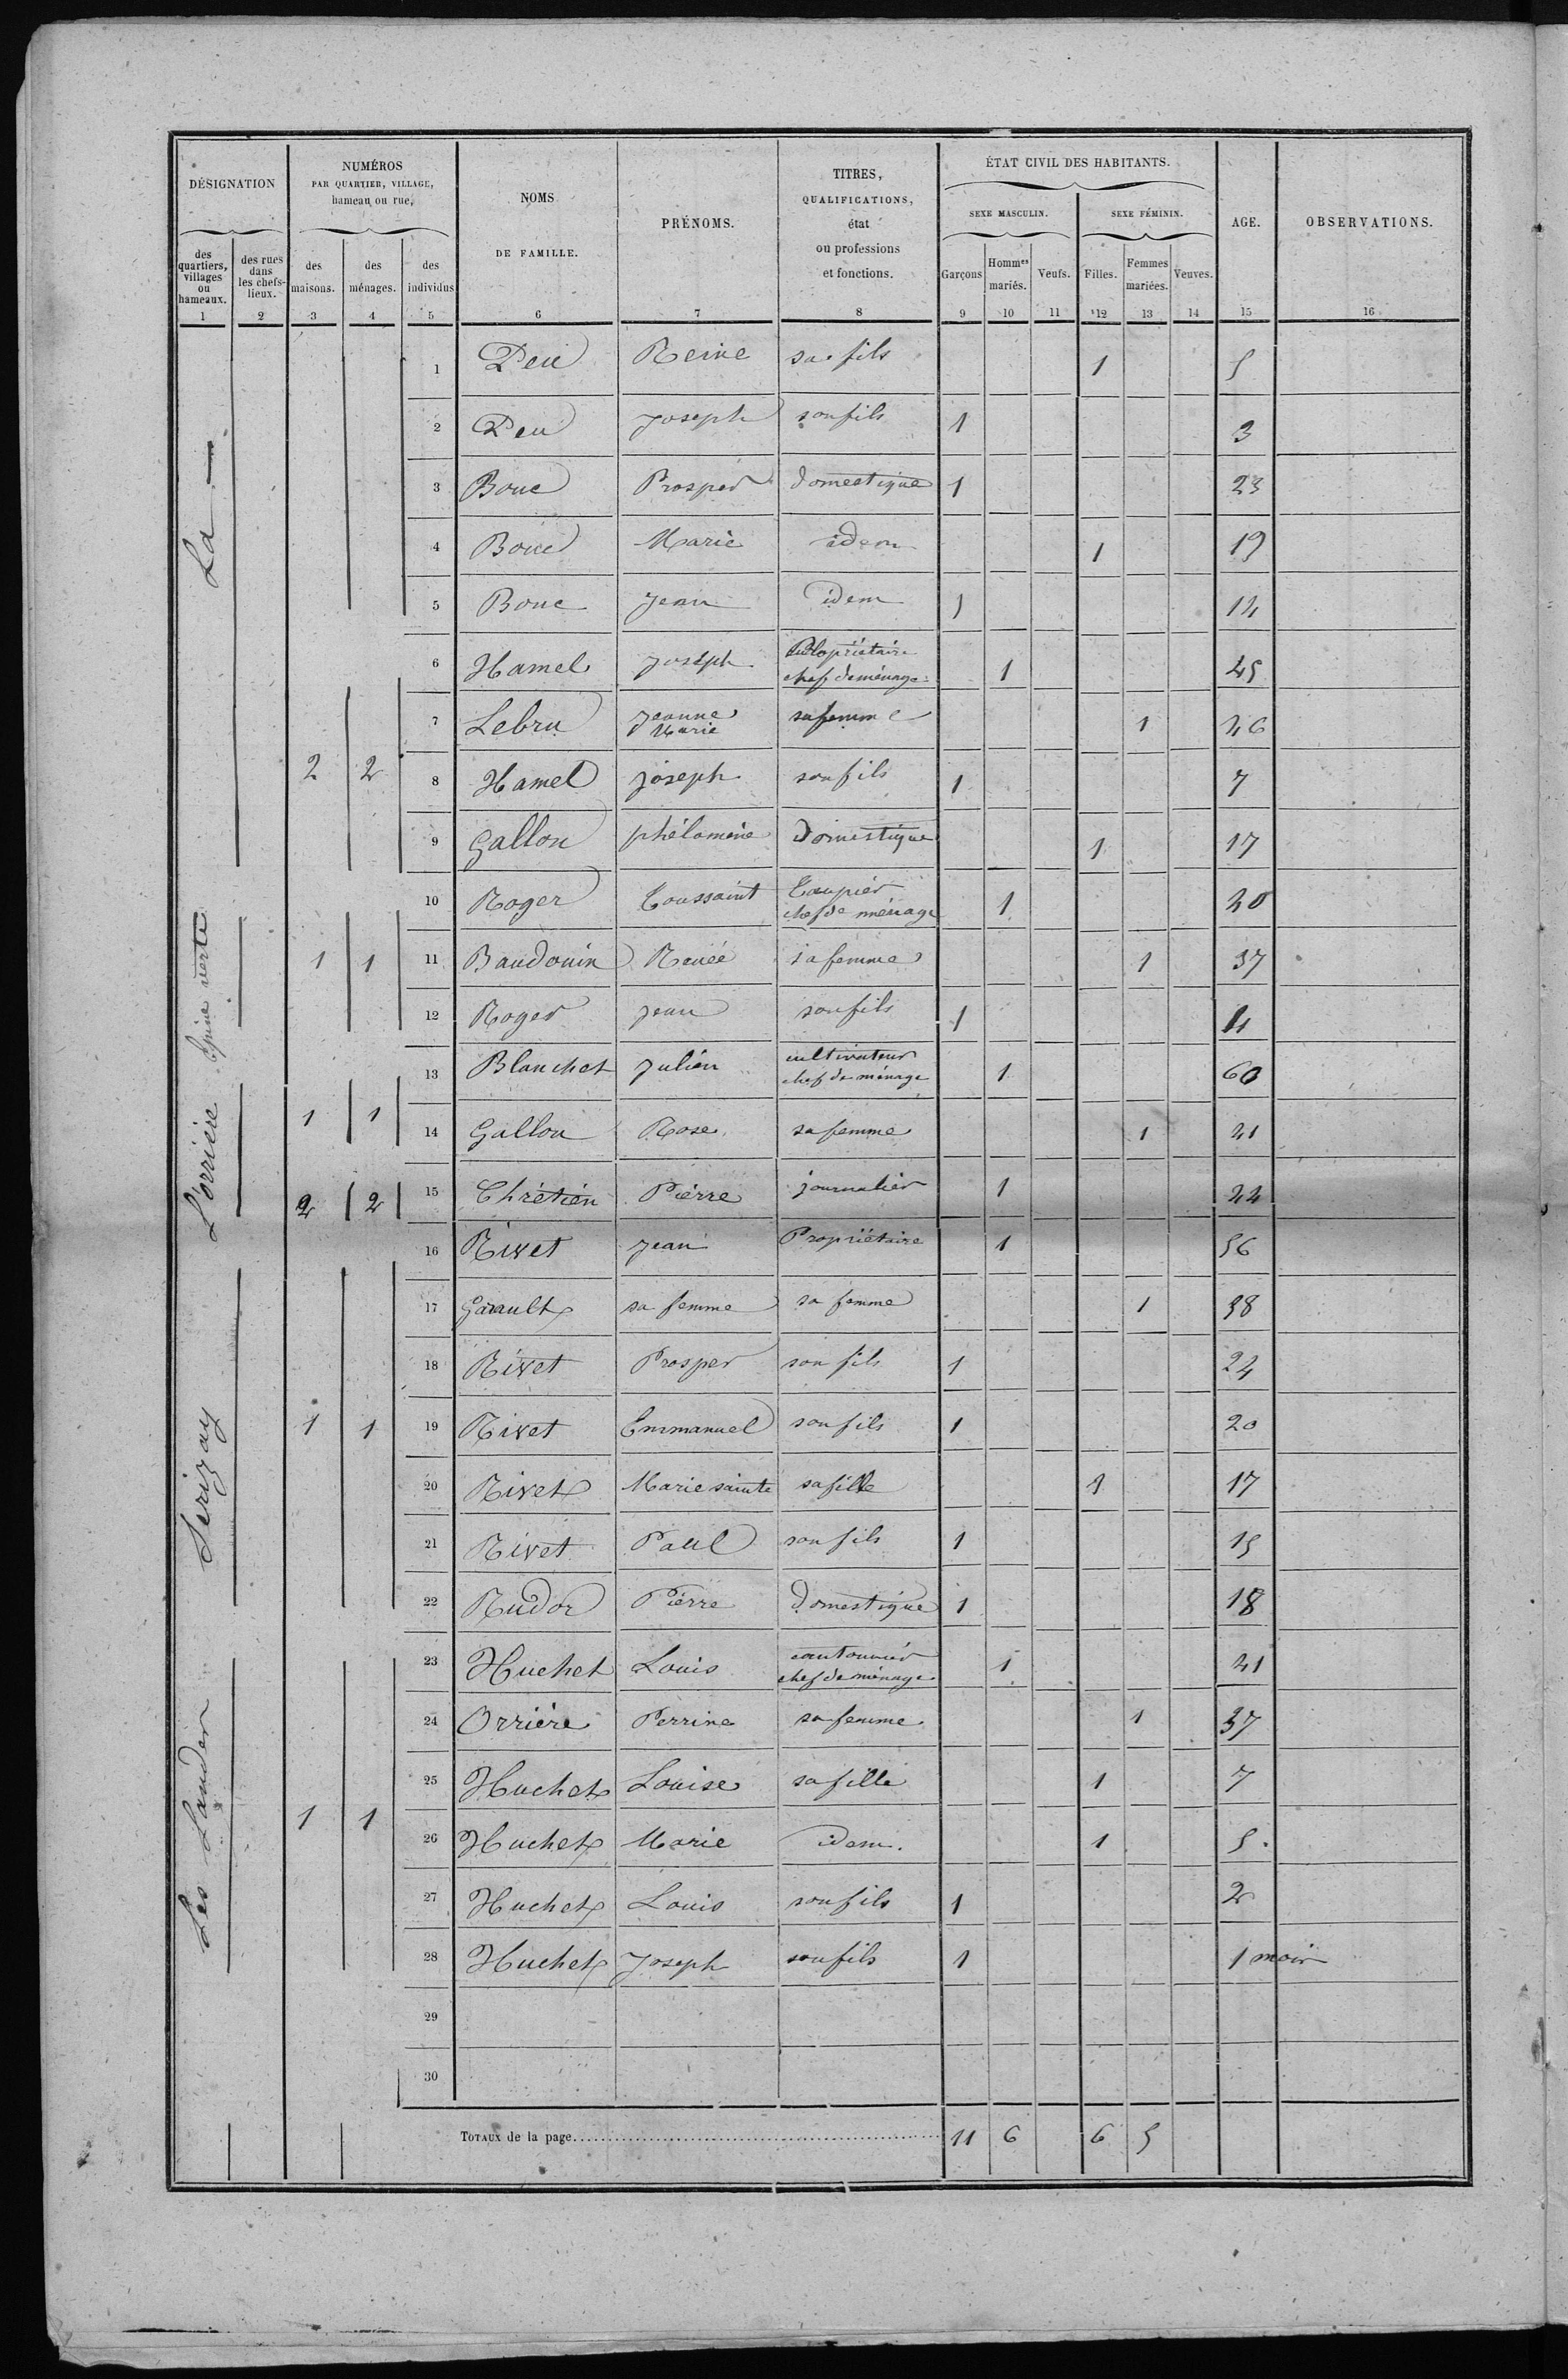 DÉSIGNATION
NUMÉROS
PAR QUARTIER, VILLAGE,
hameau ou rue,
NOMS
DE FAMILLE.
PRÉNOMS.
TITRES,
QUALIFICATIONS,
état
ou professions
et fonctions.
ÉTAT CIVIL DES HABITANTS.
SEXE MASCULIN.
SEXE FÉMININ.
AGE.
OBSERVATIONS.
des quartiers, villages ou hameaux.
des rues dans les chefs-lieux.
des maisons.
des ménages.
des individus
Garçons
Hommes mariés.
Veufs.
Filles.
Femmes mariées.
Veuves.
1 2 3 4 5 6 7 8 9 10 11 12 13 14 15 16
La
1 Peu Reine sa fils 1 5
2 Peu Joseph son fils 1 3
3 Boue Prosper domestique 1 23
4 Boue Marie idem 1 19
5 Boue Jean idem 1 14
6 Hamel Joseph Propriétaire chef de ménage 1 45
7 Lebru Jeanne Marie sa femme 1 46
2 2
8 Hamel joseph son fils 1 7
9 Gallon phélomène Domestique 1 17
10 Roger Toussaint Taupier chef de ménage 1 40
Epine verte
1 1
11 Baudouin Renée sa femme 1 37
12 Roger jean son fils 1 11
13 Blanchet Julien cultivateur chef de ménage 1 60
L'orrière
1 1
14 Gallon Rose sa femme 1 41
2 2
15 Chrétien Pierre journalier 1 44
16 Rivet jean Propriétaire 1 56
17 Garault sa femme sa femme 1 58
18 Rivet Prosper son fils 1 24
Serizay
1 1
19 Rivet Emmanuel son fils 1 20
20 Rivet Marie sainte sa fille 1 17
21 Rivet Paul son fils 1 15
22 Rudor Pierre Domestique 1 18
23 Huchet Louis cantonnier chef de ménage 1 41
24 Orrière Perrine sa femme 1 37
25 Huchet Louise sa fille 1 7
Les Landes
1 1
26 Huchet Marie idem. 1 5.
27 Huchet Louis son fils 1 2
28 Huchet Joseph son fils 1 1 mois
29
30
TOTAUX de la page 11 6 6 5